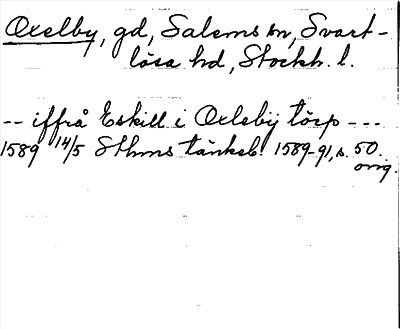 Oxelby, gd, Salems sn, Svart-
lösa hd, Stockh. l.
-- iffrå Eskill i Oxleby törp ---
1589 14/5 Sthms tänkeb. 1589-91, s. 50.
orig.